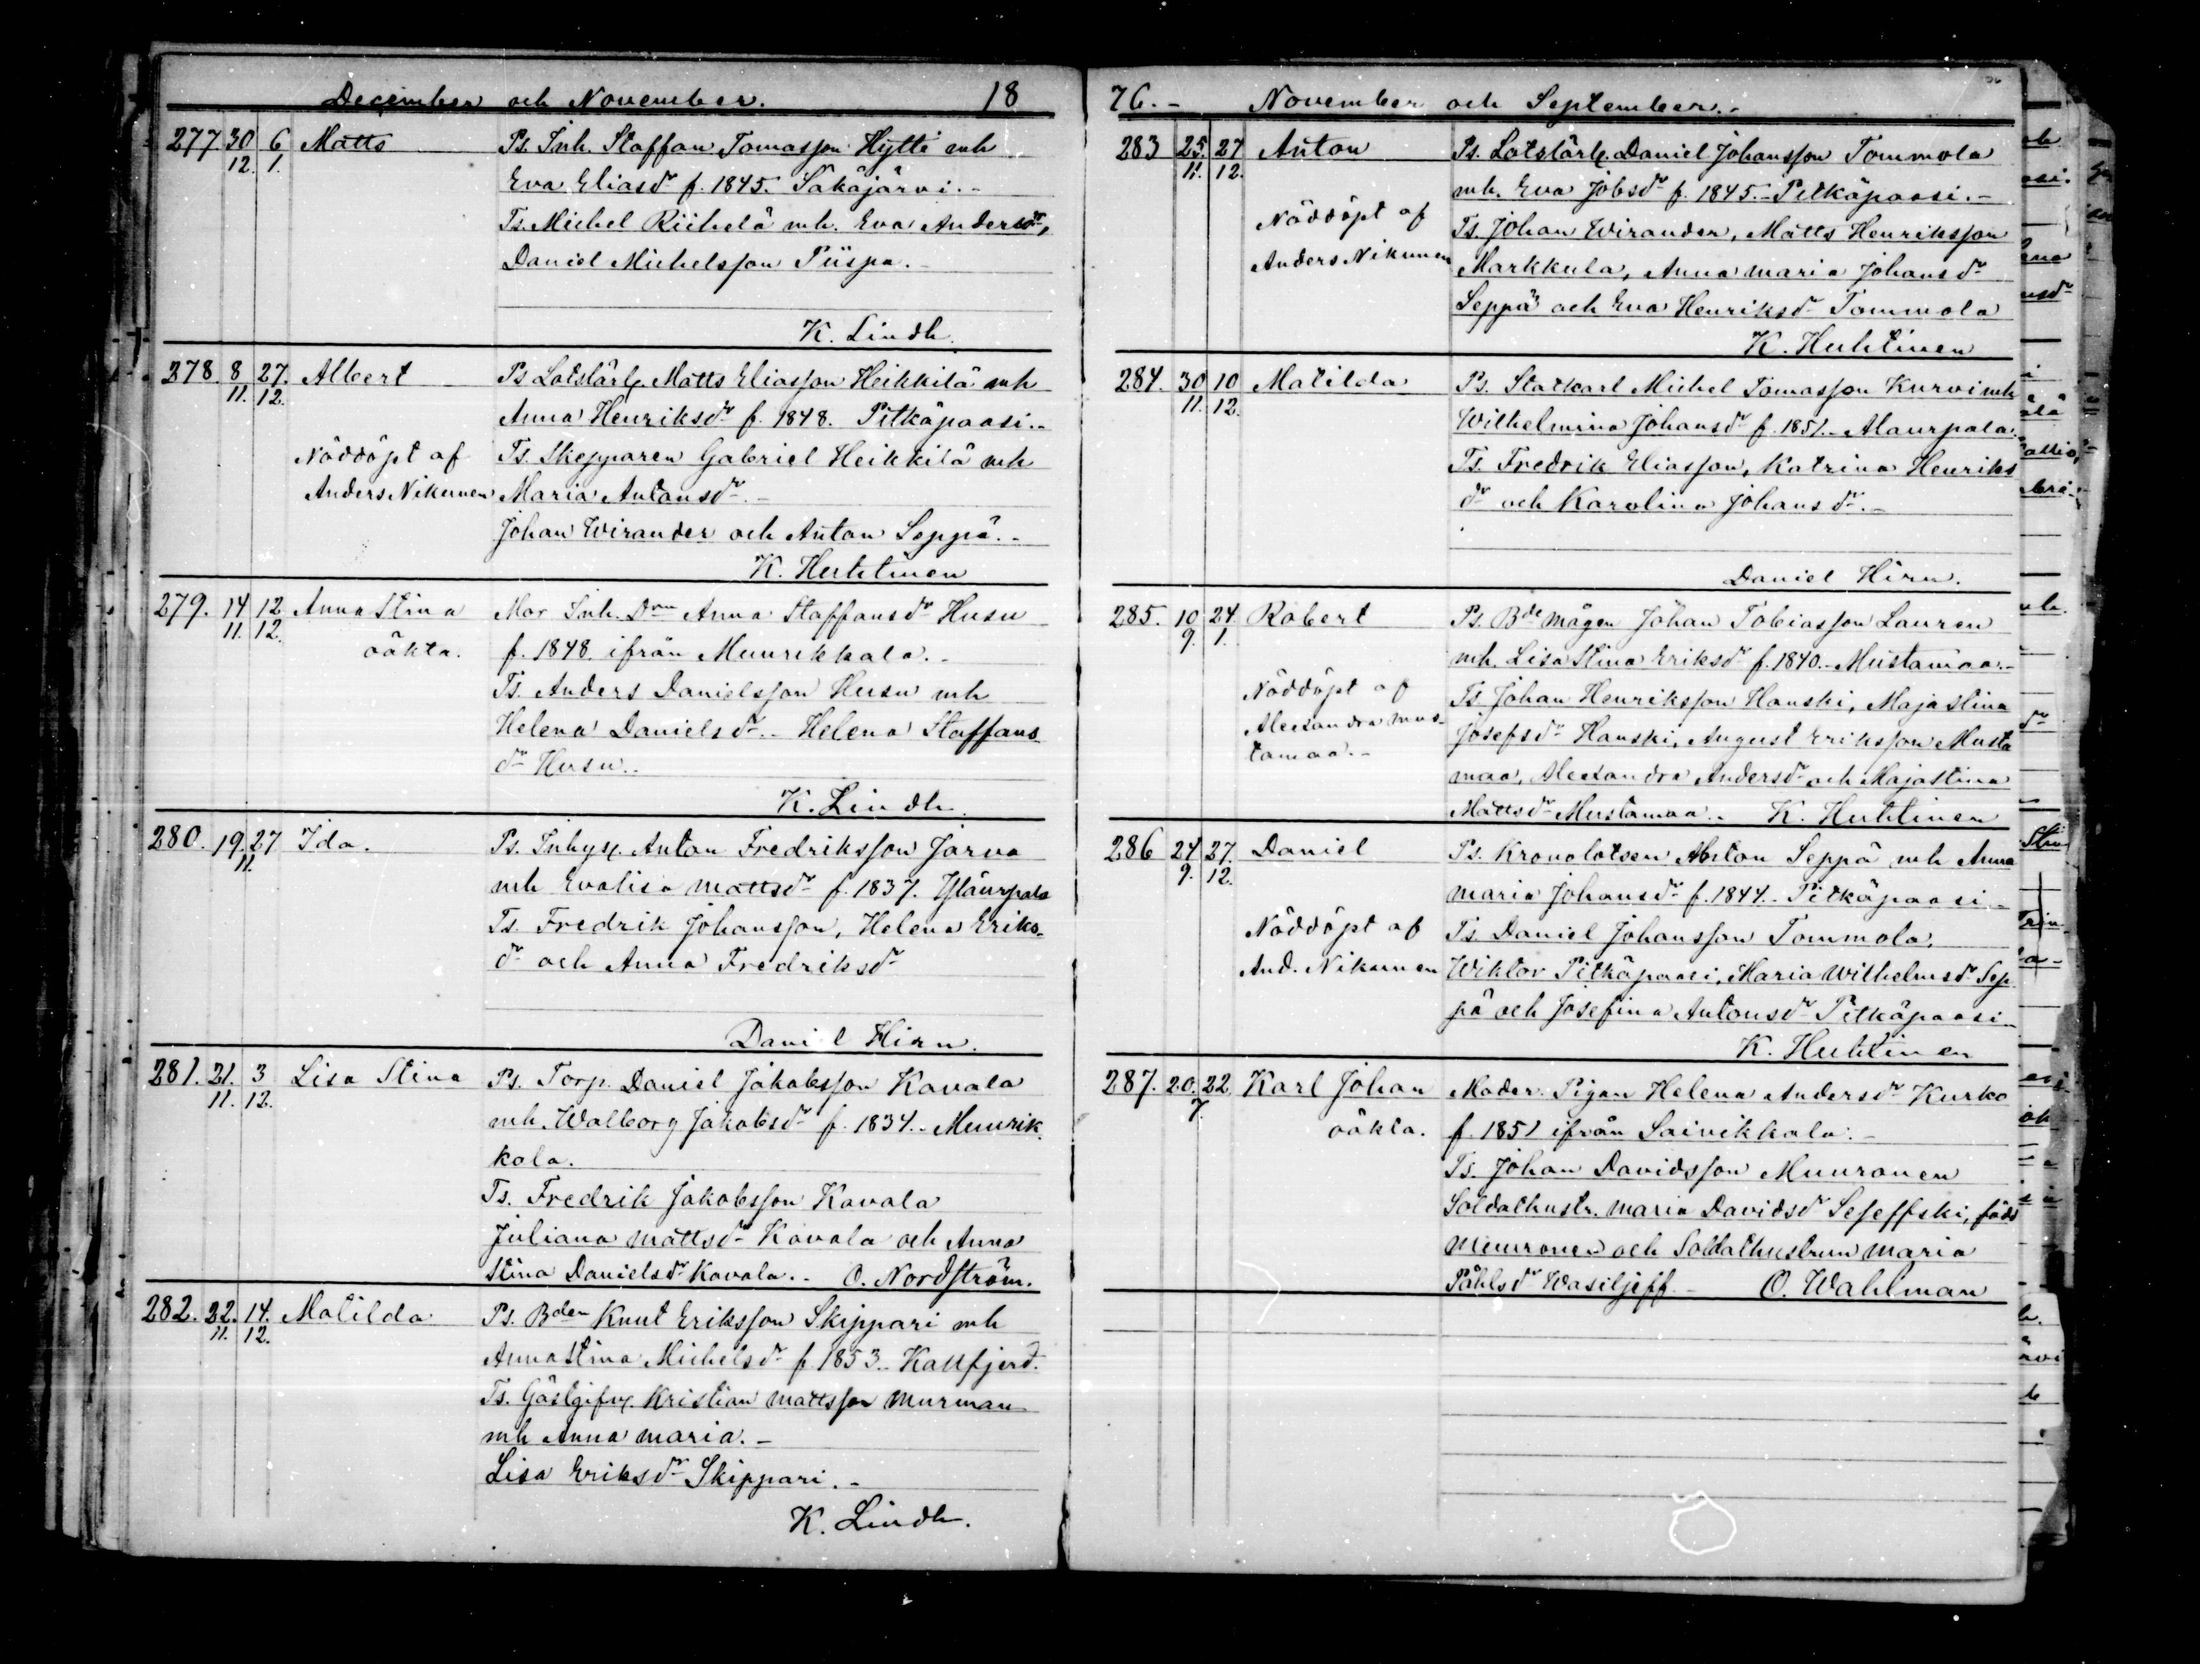 December och November. 18
277. 30 6 Matts Ps. Inh. Staffan Tomasson Hytti mh
12. 1. Eva Eliasdr f. 1845. Säkäjärvi.-
Ts. Michel Riihelä mh. Eva Andersdr,
Daniel Michelsson Piispa.-
K. Lindh.
278. 8 27. Albert Ps Lotslärl. Matts Eliasson Heikkilä mh
11. 12. Anna Henriksdr f. 1848. Pitkäpaasi.-
Nöddöpt af Ts. Skepparen Gabriel Heikkilä mh
Anders Nikunen Maria Antonsdr.-
Johan Wirander och Anton Seppä.-
K. Huhtinen
279. 14 12 Anna Stina Mor Inh. Dran Anna Staffansdr Husu
11. 12. oäkta. f. 1848. ifrån Muurikkala.-
Ts. Anders Danielsson Husu mh
Helena Danielsdr.- Helena Staffans
dr Husu..
K. Lindh.
280. 19. 27 Ida. Ps. Inhys. Anton Fredriksson Jarva
11. mh Evalisa Mattsdr f. 1837. Yläurpala
Ts. Fredrik Johansson, Helena Eriks-
dr och Anna Fredriksdr
Daniel Hirn.
281. 21. 3 Lisa Stina Ps. Torp. Daniel Jakobsson Kavala
11. 12. mh. Walborg Jakobsdr f. 1834.- Muurik
kala.
Ts. Fredrik Jakobsson Kavala
Juliana Mattsdr Kavala och Anna
Stina Danielsdr Kavala.. O. Nordström.
282. 22. 14. Matilda Ps. Bden Knut Eriksson Skippari mh
11. 12. Anna Stina Michelsdr f. 1853.. Kallfjerd.
Ts. Gästgifv. Kristian Mattsson Murman
mh Anna Maria.-
Lisa Eriksdr Skippari.-
K. Lindh.
76.- November och September.-
283 25. 27 Anton Ps. Lotslärl. Daniel Johansson Tommola
11. 12. mh. Eva Jobsdr f. 1845.- Pitkäpaasi.-
Nöddöpt af Ts. Johan Wirander, Matts Henriksson
Anders Nikunen Markkula, Anna Maria Johansdr
Seppä och Eva Henriksdr Tommola
K. Huhtinen
284. 30 10 Matilda Ps. Statkarl Michel Tomasson Kurvi mh
11. 12. Wilhelmina Johansdr f. 1851.- Alaurpala.-
Ts. Fredrik Eliasson, Katrina Henriks
dr och Karolina Johansdr.-
Daniel Hirn.
285. 10 24. Robert Ps. Bde mågen Johan Tobiasson Lauren
9. 1. mh. Lisa Stina Eriksdr f. 1840.- Mustamaa.-
Nöddöpt af Ts Johan Henriksson Hanski, Maja Stina
Alexandra Mus- Josefsdr Hanski, August Eriksson Musta
tamaa.- maa, Alexandra Andersdr och Maja Stina
Mattsdr Mustamaa.. K. Huhtinen
286 24 27. Daniel Ps. Kronolotsen Anton Seppä mh Anna
9. 12. Maria Johansdr f. 1844.- Pitkäpaasi.-
Nöddöpt af Ts. Daniel Johansson Tommola,
And. Nikunen Wiktor Pitkäpaasi, Maria Wilhelmsdr Sep
pä och Josefina Antonsdr Pitkäpaasi.-
K. Huhtinen
287. 20. 22 Karl Johan Moder. Pigan Helena Andersdr Kurko
7. oäkta. f. 1851 ifrån Saivikkala.-
Ts. Johan Davidsson Muuronen
Soldathustr. Maria Davidsdr Seseffski, född
Muuronen och Soldathustrun Maria
Påhlsdr Wasiljeff.- O. Wahlman